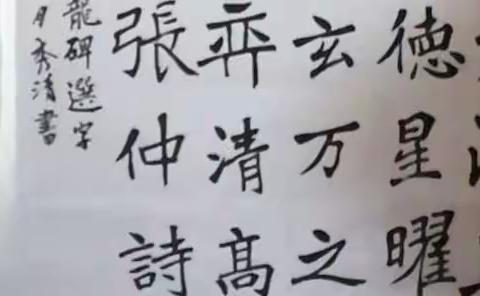 德星曜
玄万之
弈清高
張仲詩
龍碑選字
月秀清書